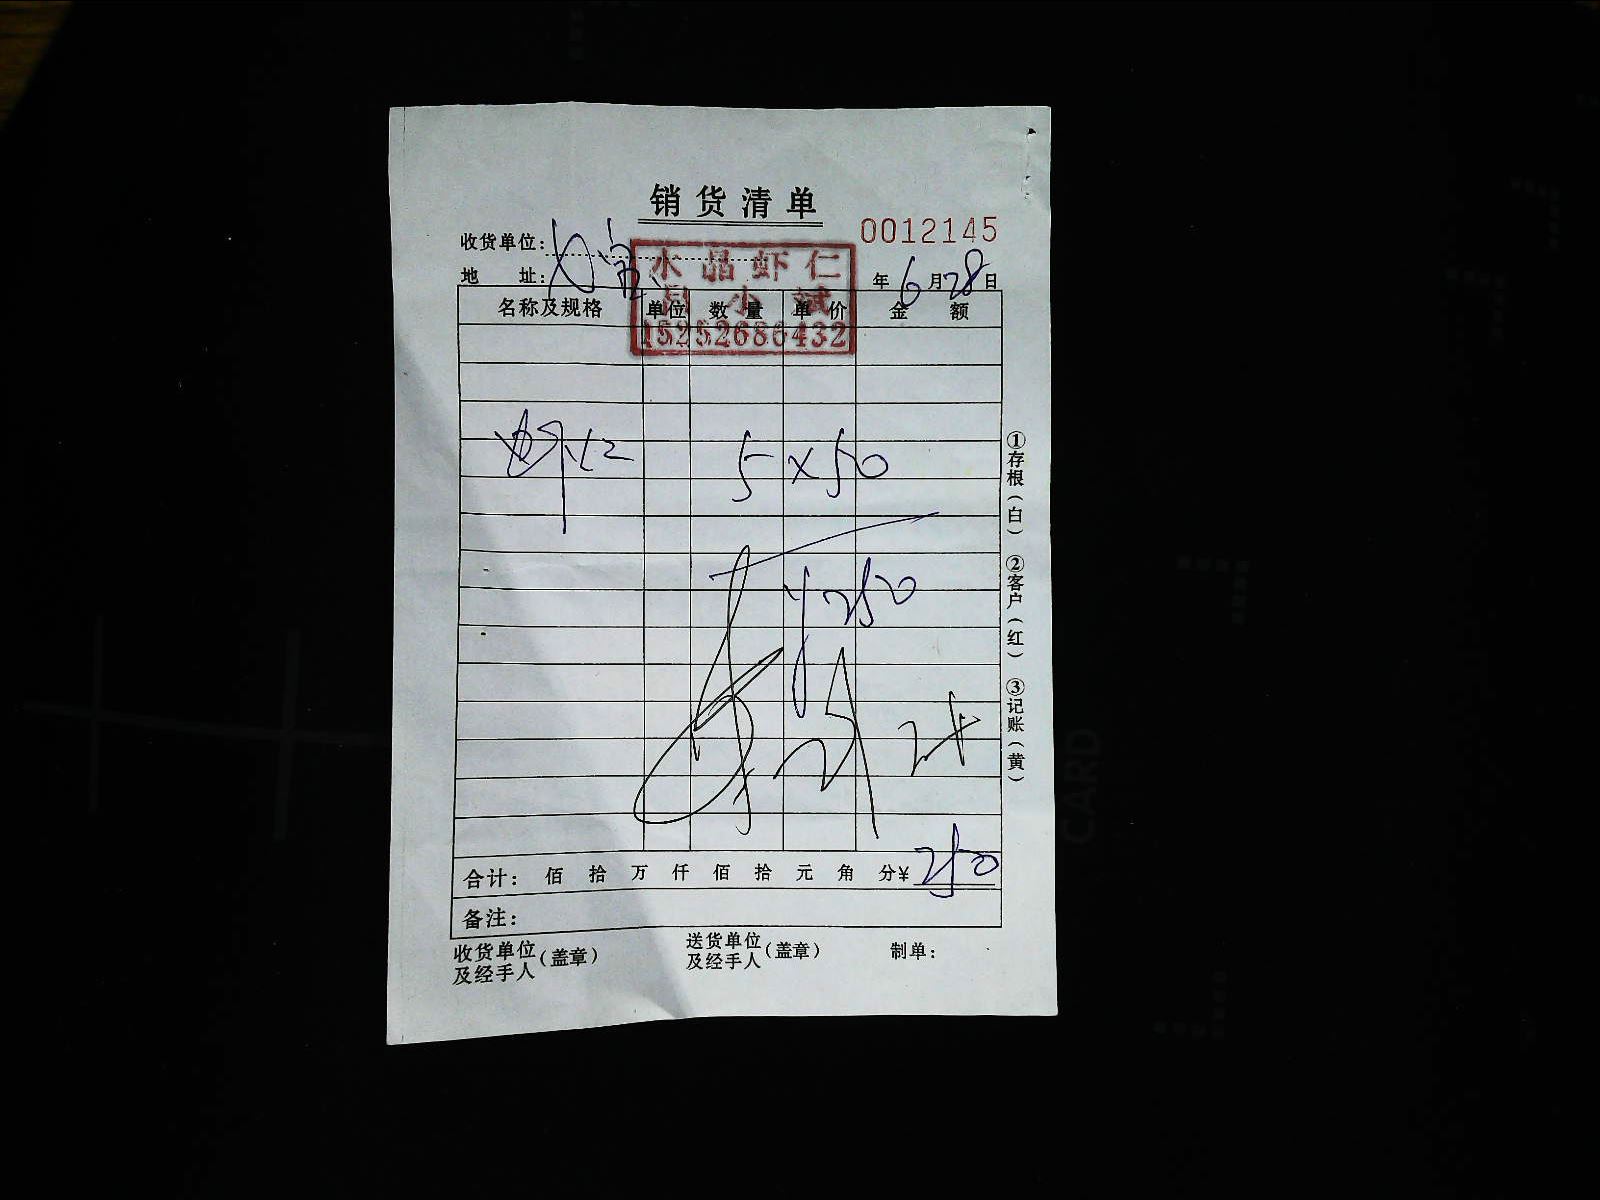 销货清单
0012145
收货单位：
地 址： 年 6 月 28 日
水晶虾仁
15252686432
名称及规格 单位 数量 单价 金额
虾仁 5×50
¥250
合计： 佰 拾 万 仟 佰 拾 元 角 分 ¥ 250
备注：
收货单位及经手人（盖章） 送货单位及经手人（盖章） 制单：
①存根（白） ②客户（红） ③记账（黄）
CARD